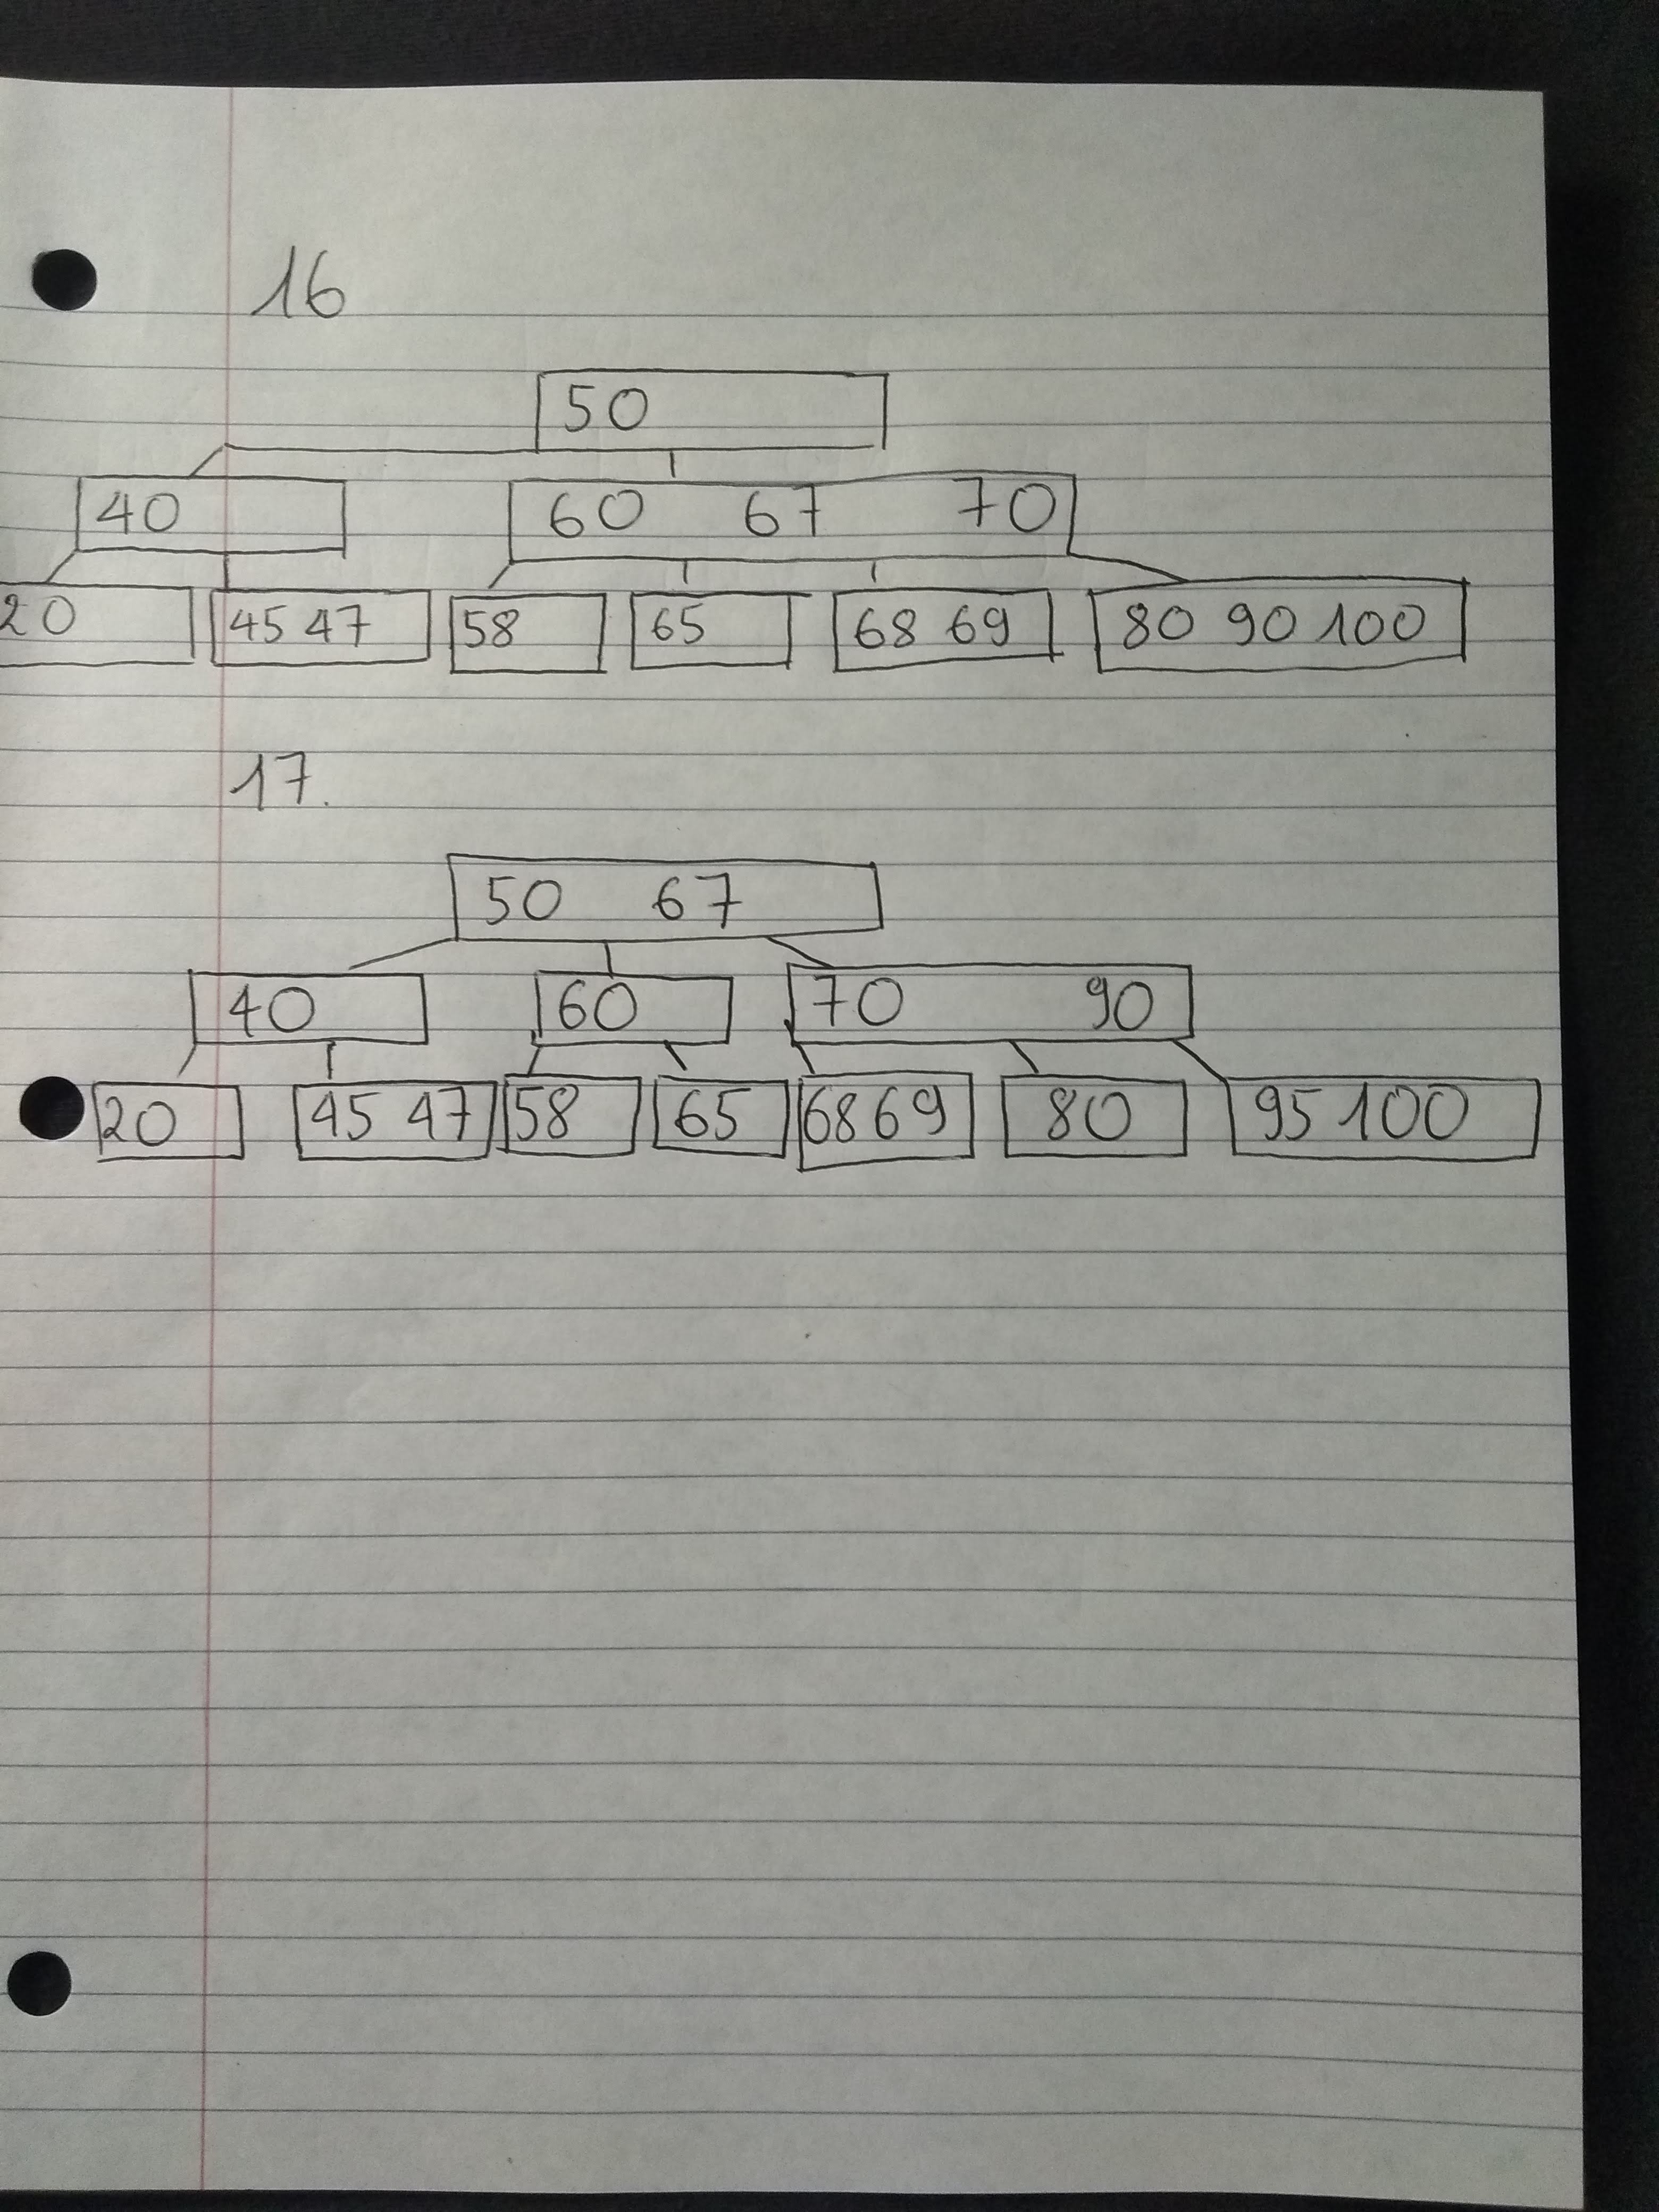 16
50
40 60 67 70
20 45 47 58 65 68 69 80 90 100
17.
50 67
40 60 70 90
20 45 47 58 65 68 69 80 95 100